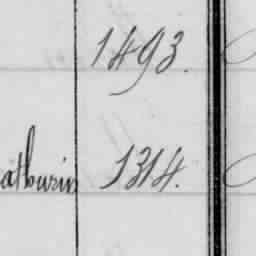 1493.
athurin 1314.